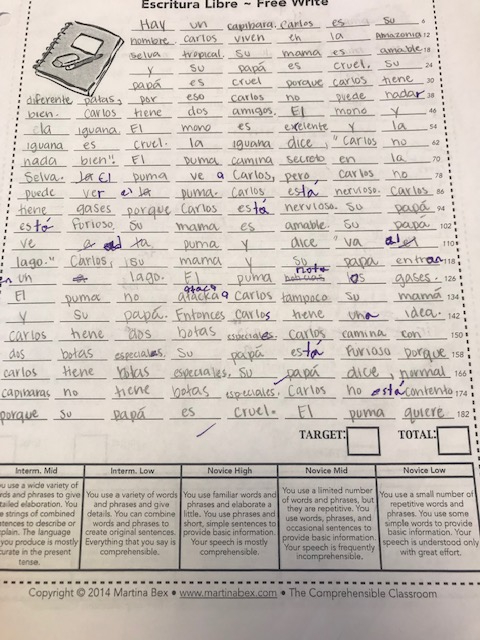 Escritura Libre ~ Free Write
Hay un capibara. Carlos es su 6
nombre. Carlos viven en la Amazonia 12
selva tropical. Su mama es amable 18
y su papá es cruel. Su 24
papá es cruel porque Carlos tiene 30
diferente patas, por eso Carlos no puede nadar 38
bien. Carlos tiene dos amigos. El mono y 46
la iguana. El mono es exelente y la 54
iguana es cruel. la iguana dice, "Carlos no 62
nada bien". El puma camina secreto en la 70
selva. El puma ve a Carlos, pero Carlos no 78
puede ver el puma. Carlos está nervioso. Carlos 86
tiene gases porque Carlos está nervioso. Su papá 94
está furioso. Su mama es amable. Su papá 102
ve al puma y dice "va al 110
lago." Carlos, su mama y su papa entran 118
en un lago. El puma note los gases. 126
El puma no ataca a Carlos tampoco su mamá 134
y su papá. Entonces Carlos tiene una idea. 142
carlos tiene dos botas especiales. Carlos camina con 150
dos botas especiales. Su papá está furioso porque 158
carlos tiene botas especiales. Su papá dice, normal 166
capibaras no tiene botas especiales. Carlos no está contento 174
porque su papá es cruel. El puma quiere 182
TARGET: TOTAL:
Interm. Mid Interm. Low Novice High Novice Mid Novice Low
You use a variety of words and phrases and give details. You can combine words and phrases to create original sentences. Everything that you say is comprehensible.
You use familiar words and phrases and elaborate a little. You use phrases and short, simple sentences to provide basic information. Your speech is mostly comprehensible.
You use a limited number of words and phrases, but they are repetitive. You use words, phrases, and occasional sentences to provide basic information. Your speech is frequently incomprehensible.
You use a small number of repetitive words and phrases. You use some simple words to provide basic information. Your speech is understood only with great effort.
Copyright © 2014 Martina Bex • www.martinabex.com • The Comprehensible Classroom